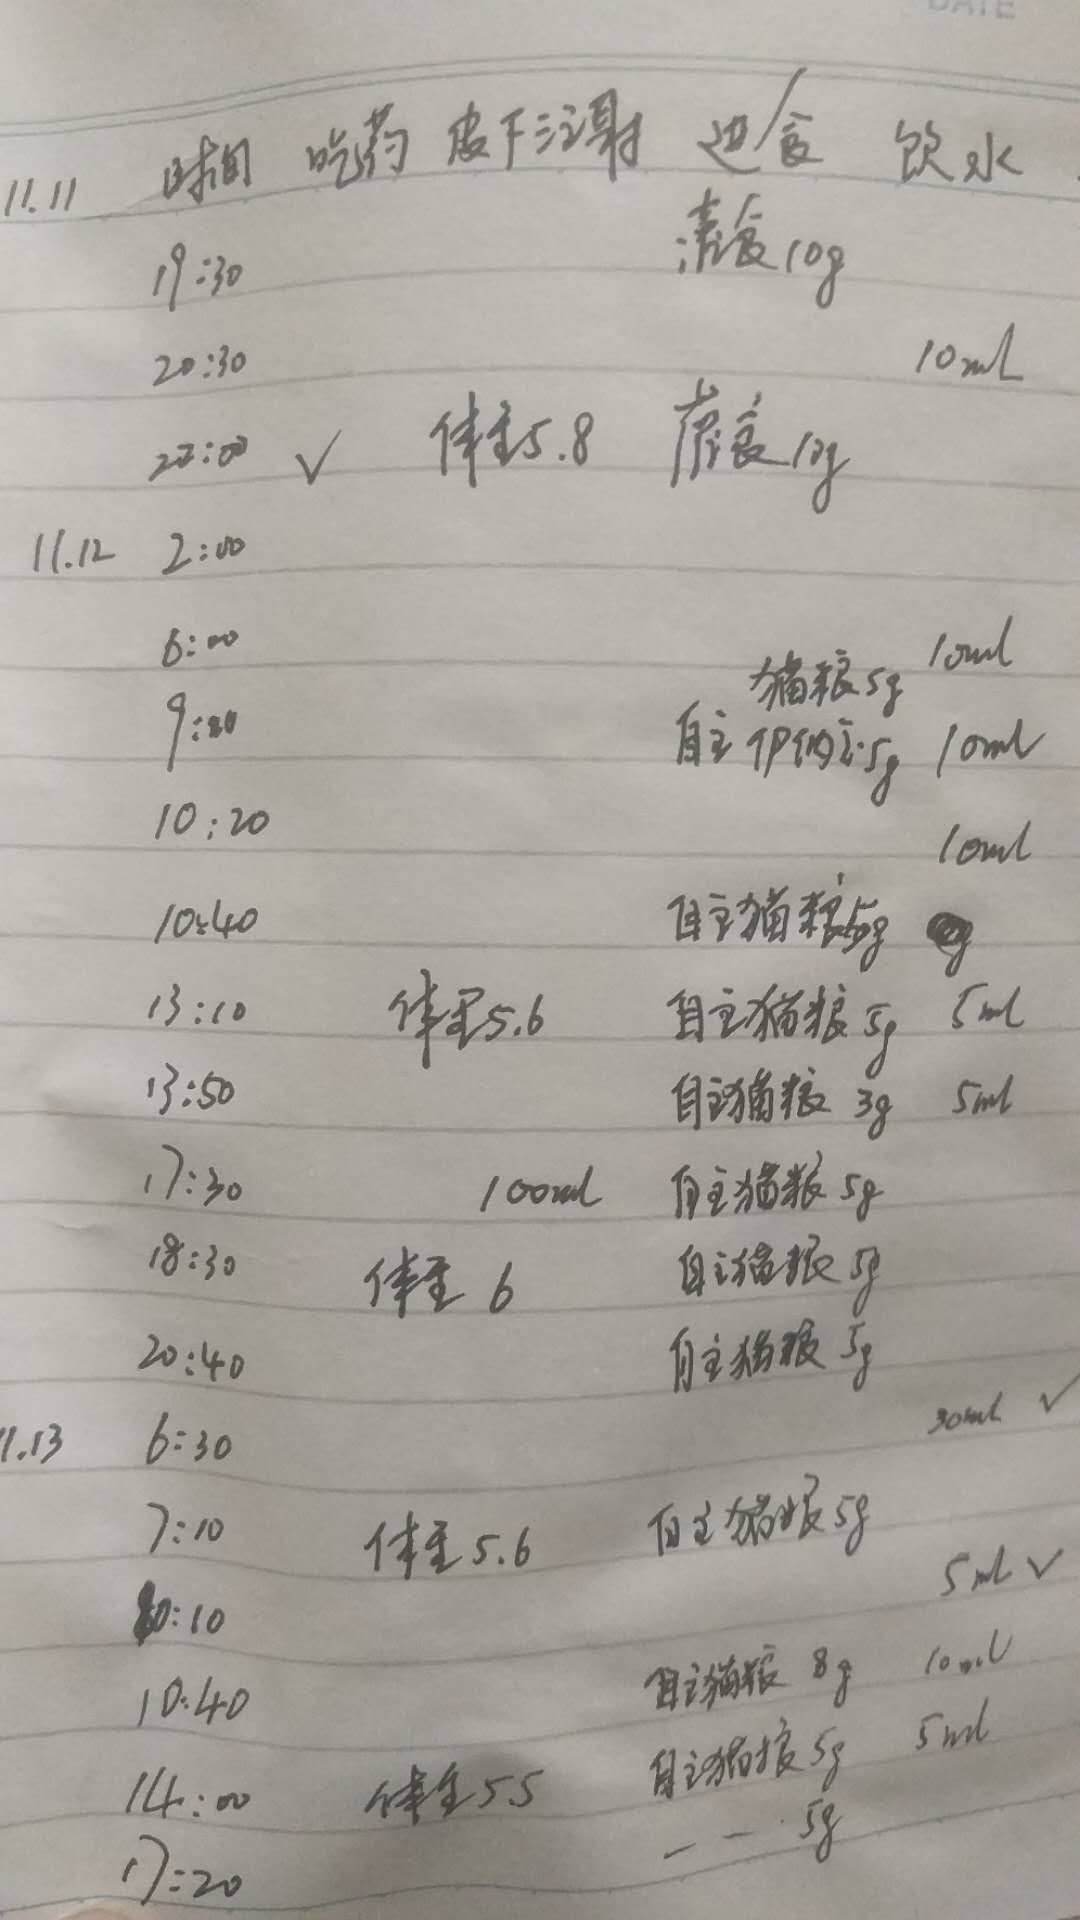 DATE
11.11 时间 吃药 皮下注射 进食 饮水
19:30 10g
20:30 10ml
22:00 ✓ 体重5.8 10g
11.12 2:00
6:00 10ml
猫粮5g
9:00 自主 5g 10ml
10:20 10ml
10:40 自主猫粮5g
13:10 体重5.6 自主猫粮5g 5ml
13:50 自主猫粮 3g 5ml
17:30 100ml 自主猫粮 5g
18:30 体重 6 自主猫粮 5g
20:40 自主猫粮 5g
11.13 6:30 30ml ✓
7:10 体重5.6 自主猫粮5g
:10 5ml ✓
10:40 自主猫粮 8g 10ml
14:00 体重5.5 自主猫粮5g 5ml
17:20 — — 5g